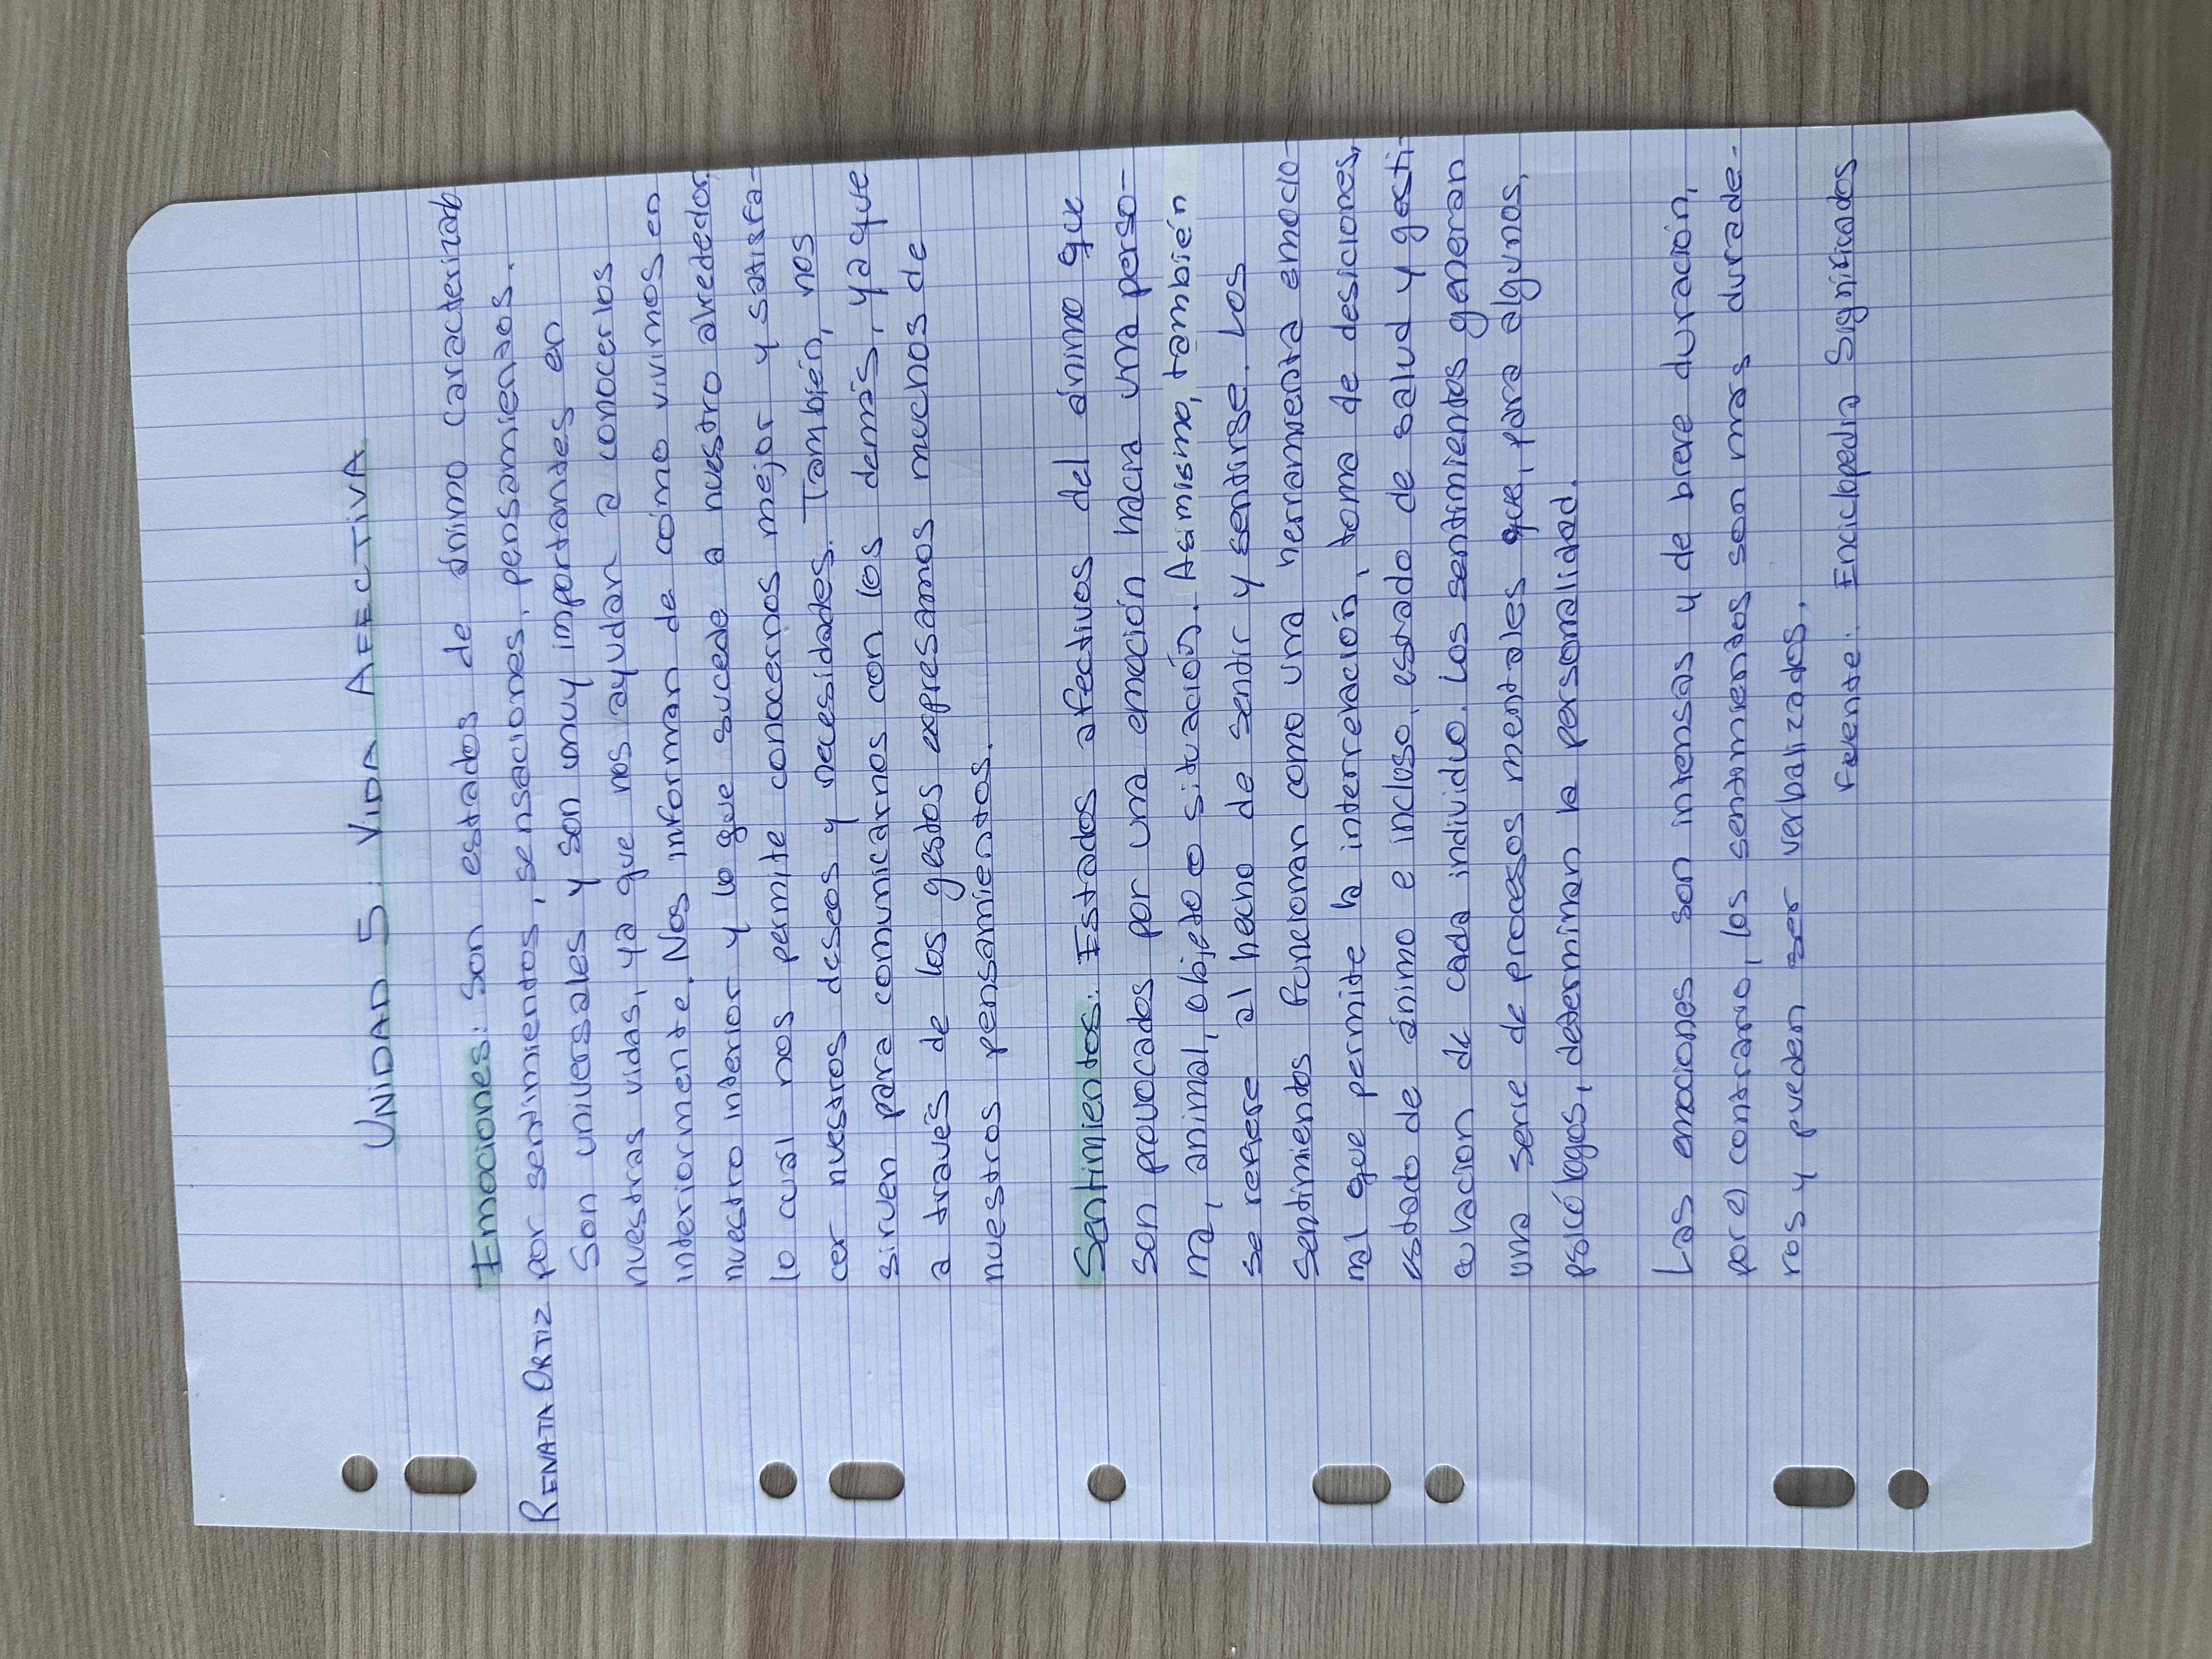 UNIDAD 5: VIDA AFECTIVA
Emociones: Son estados de ánimo caracterizado
por sentimientos, sensaciones, pensamientos.
Son universales y son muy importantes en
nuestras vidas, ya que nos ayudan a conocerlos
interiormente. Nos informan de cómo vivimos en
nuestro interior y lo que sucede a nuestro alrededor,
lo cual nos permite conocernos mejor y satisfa-
cer nuestros deseos y necesidades. También, nos
sirven para comunicarnos con los demás, ya que
a través de los gestos expresamos muchos de
nuestros pensamientos.
Sentimientos: Estados afectivos del ánimo que
son provocados por una emoción hacia una perso-
na, animal, objeto o situación. Asimismo, también
se refiere al hecho de sentir y sentirse. Los
sentimientos funcionan como una herramienta emocio-
nal que permite la interrelación, toma de desiciones,
estado de ánimo e incluso, estado de salud y gesti-
culacion de cada individuo. Los sentimientos generan
una serie de procesos mentales que, para algunos,
psicólogos, determinan la personalidad.
Las emociones son intensas y de breve duración,
por el contrario, los sentimientos son mas durade-
ros y pueden ser verbalizados.
Fuente: Enciclopedia Significados
RENATA ORTIZ